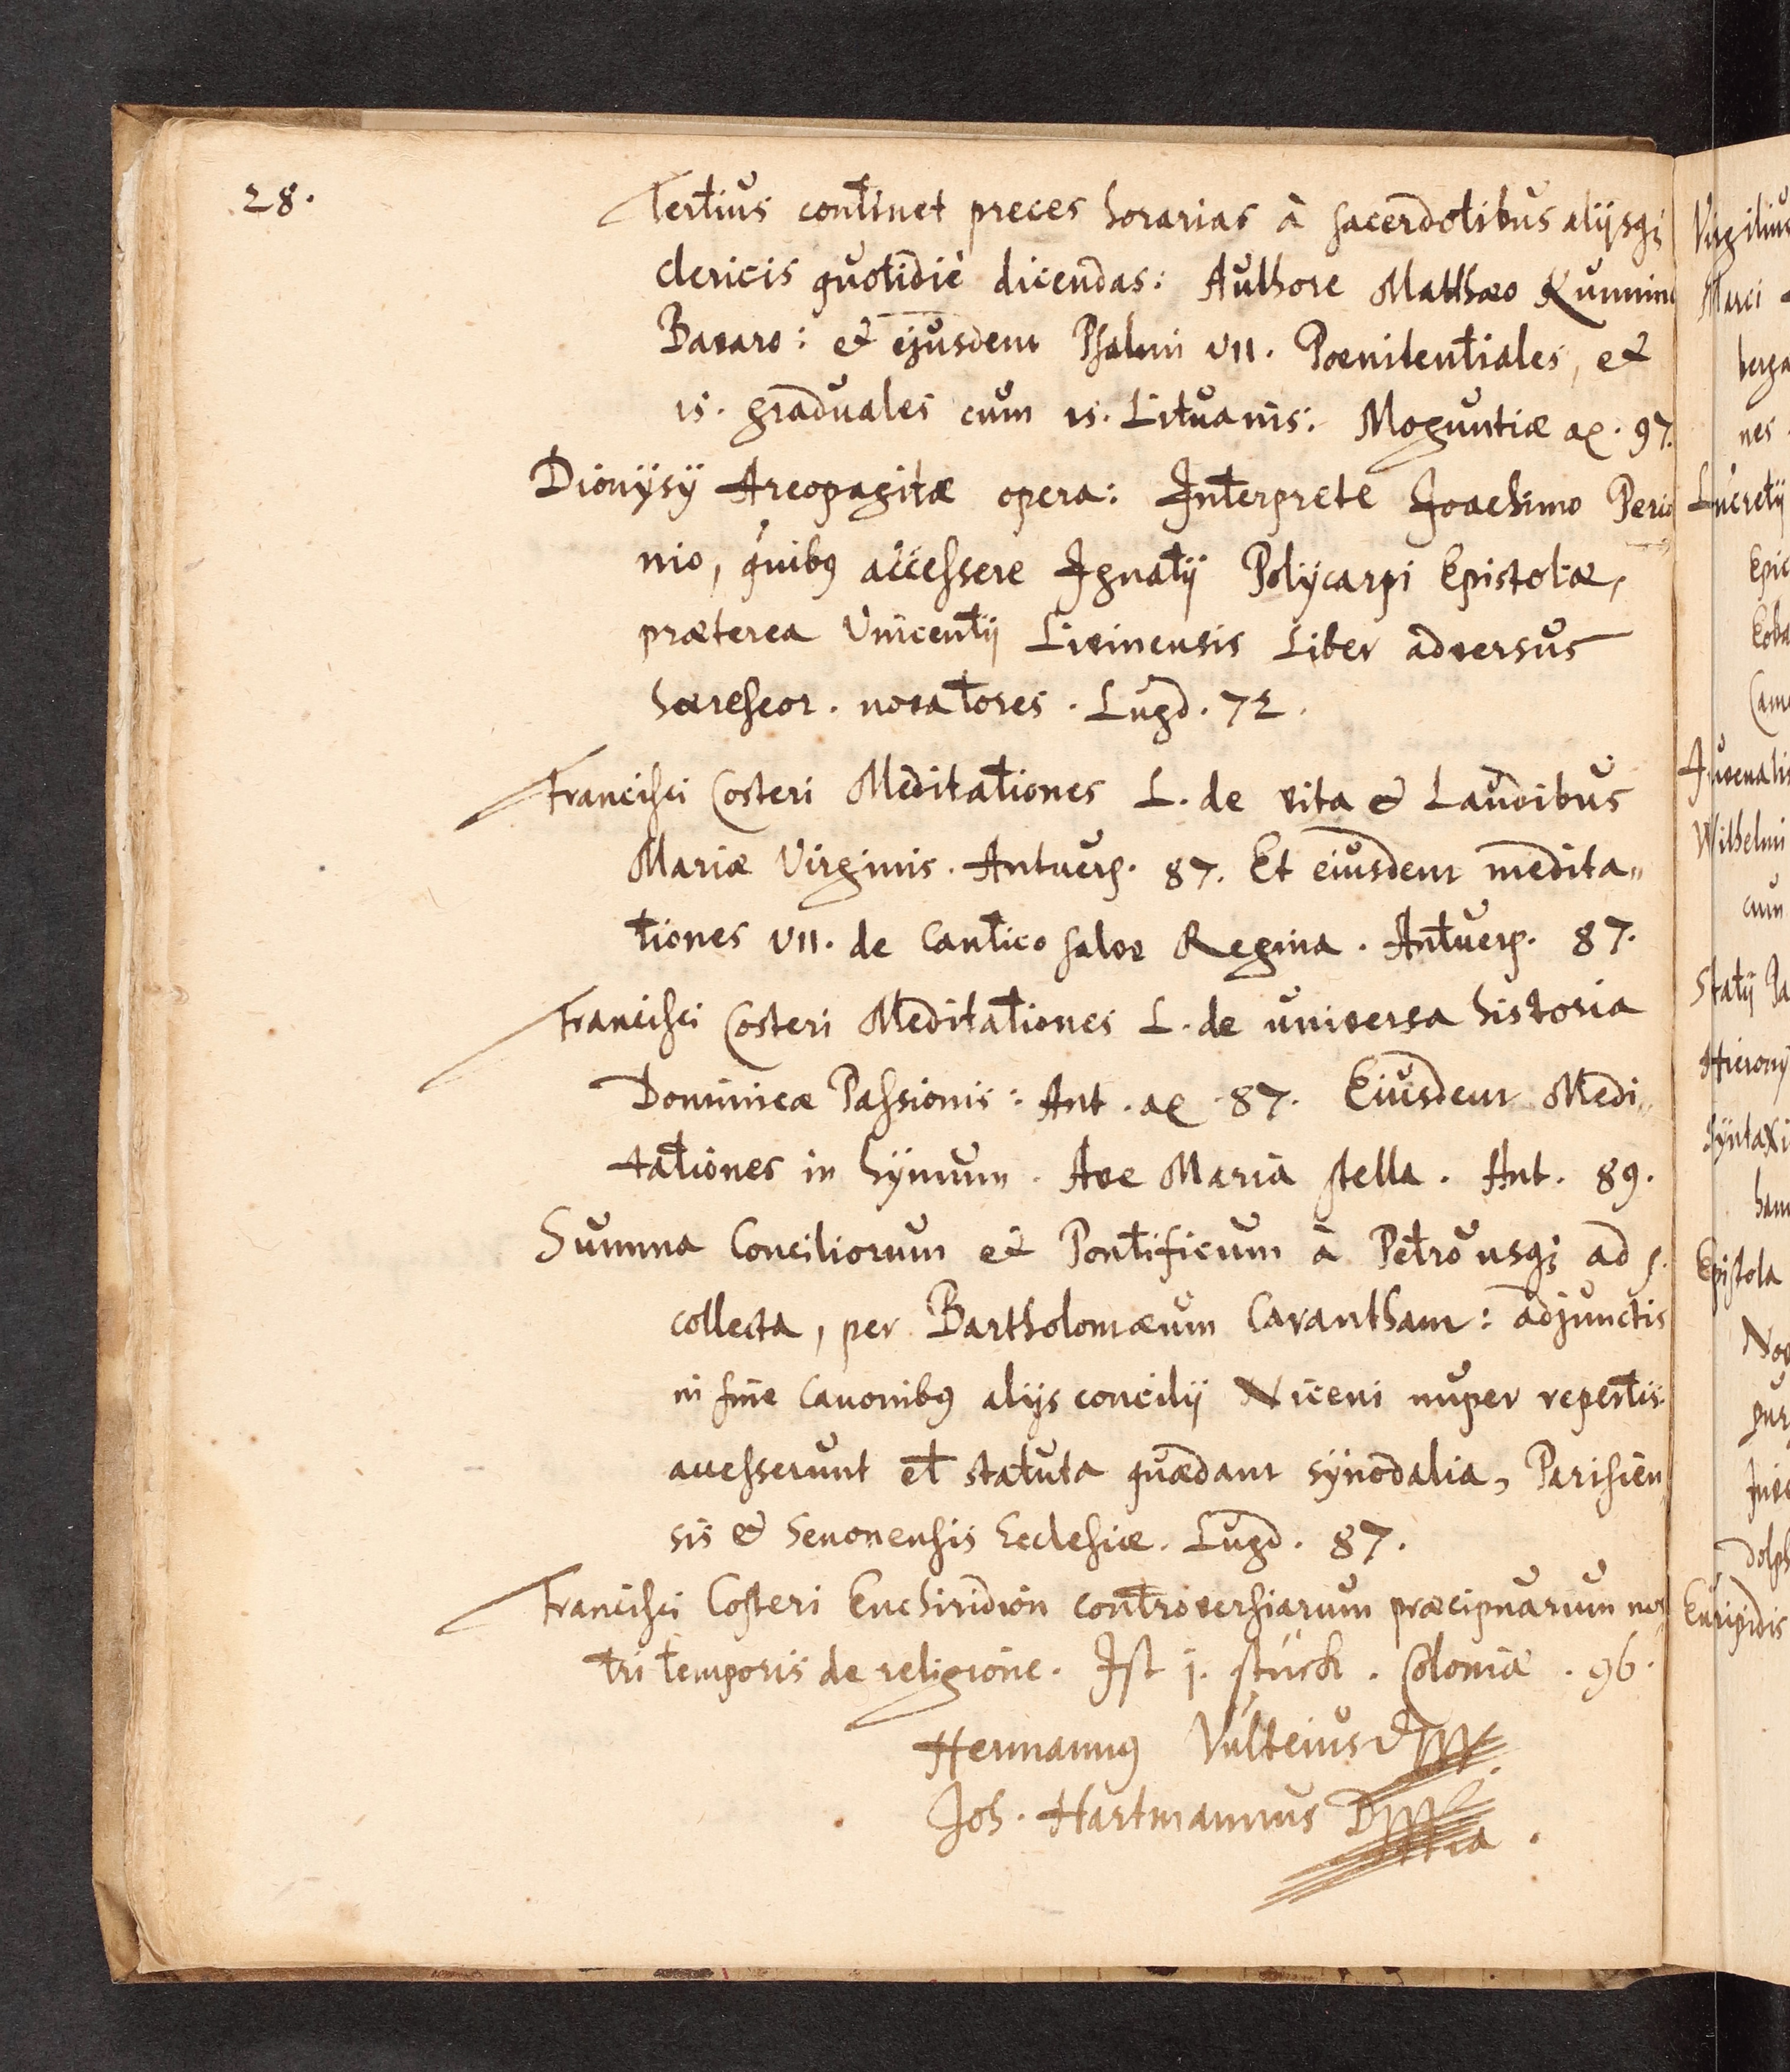 28.
Tertius continet preces horarias à sacerdotibus alijsq;
clericis quotidiè dicendas: Authore Matthæo
Bavaro: et ejusdem Psalmi VII. Poenitentiales, et
15. graduales cum 15. Lituanis: Moguntiæ aꝫ. 97.
Dionÿsÿ Areopagitæ opera: Interprete Joachimo Perio
nio, quibꝰ accessere Ignatÿ Polÿcarpi Epistolæ,
præterea Vincentÿ Livinensis Liber adversus
hæreseor. novatores. Lugd. 72.
Francisci Costeri Meditationes L. de vita & Laudibus
Mariæ Virginis. Antuerp. 87. Et eiusdem medita„
tiones VII. de Cantico salve Regina. Antuerp. 87.
Francisci Costeri Meditationes L. de universa historia
Dominicæ Passionis: Ant. aꝫ. 87. Eiusdem Medi„
tationes in hÿmum. Ave Maria stella. Ant. 89.
Summa Conciliorum et Pontificum à Petro usq; ad
collecta, per Bartholomæum Carantham: adjunctis
in fine Canonibꝰ alijs concilij Niceni nuper repertis.
accesserunt et statuta quædam sÿnodalia, Parisien
sis & Senonensis Ecclesiæ. Lugd. 87.
Francisci Costeri Enchiridion controversiarum præcipuarum nos„
tri temporis de religione. Ist j. stück. Coloniæ. 96.
Hermannꝰ Vulteius D
Joh. Hartmannus D
Virgilius
Marci
nes
Lucretÿ
Epic
Eoba
Juvenalis
Wilhelmi
cum
Statÿ Pa
Hierony
Sÿntaxi
Epistola
Nov
pur
dolph
Euripidis